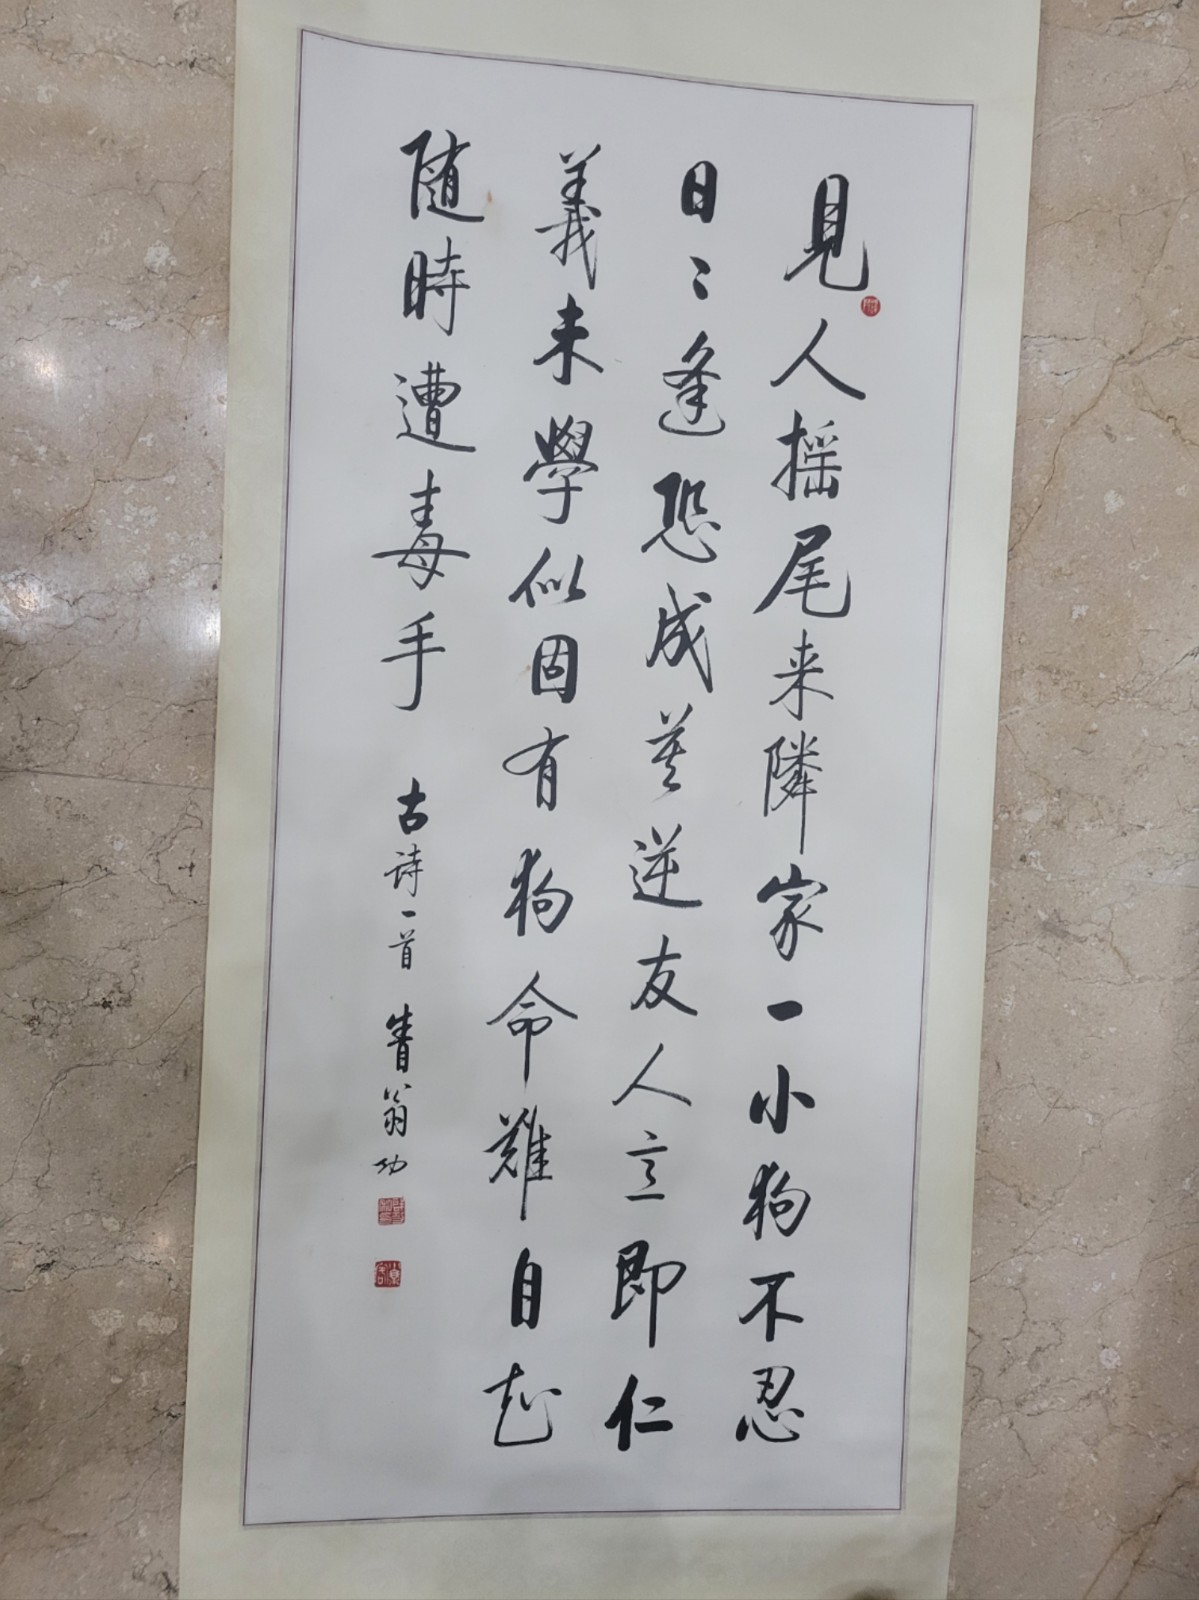 見人摇尾来隣家一小狗不忍
日〻逢恐成莫逆友人言即仁
義未學似固有狗命難自
随時遭毒手
古诗一首 眚翁功